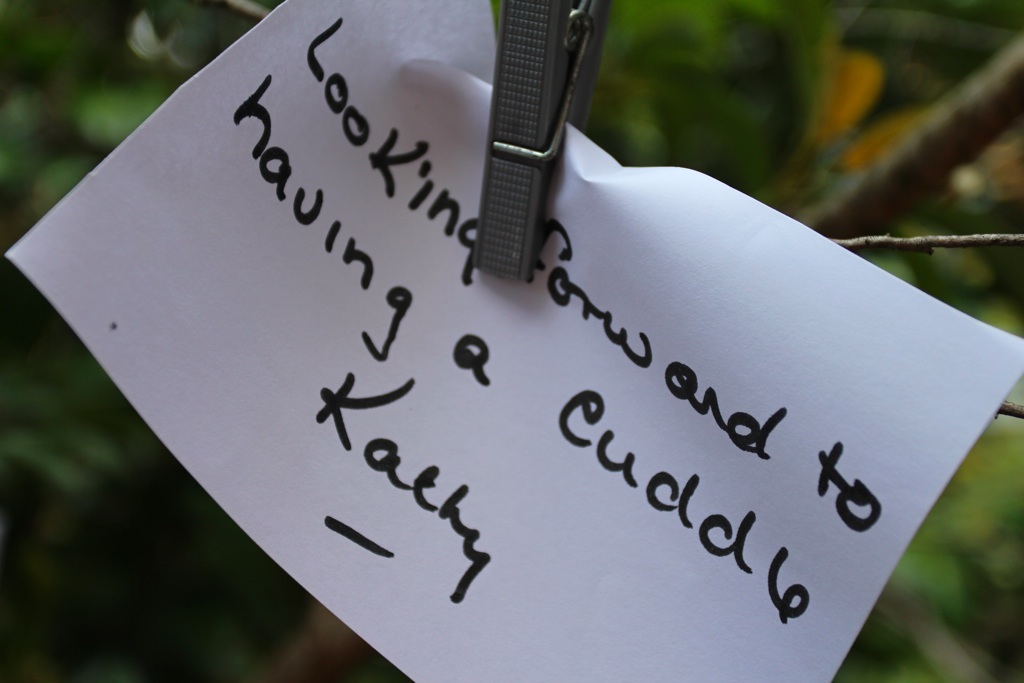 Looking forward to
having a cuddle
Kathy